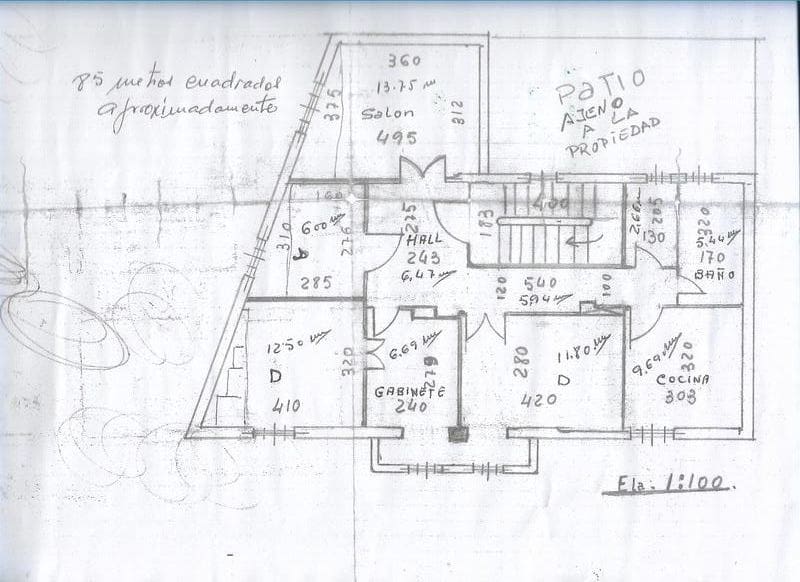 85 metros cuadrados
aproximadamente
360
13.75 m
375
Salon
312
495
PATIO
AJENO
A LA
PROPIEDAD
160
600 m
310
276
285
275
HALL
243
6,47 m
183
400
2,60 m
205
130
320
5.44 m
170
BAÑO
120
540
594 m
100
12.50 m
320
D
410
6.69 m
279
GABINETE
240
280
11.80 m
D
420
9.69 m
320
COCINA
303
Ela. 1:100.